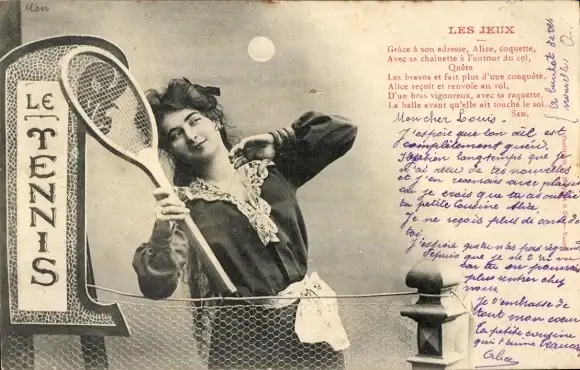 LES JEUX
Grâce à son adresse, Alice, coquette,
Avec sa chainette à l'entour du col,
Quête
Les bravos et fait plus d'une conquête.
Alice reçoit et renvoie au vol,
D'un bras vigoureux, avec sa raquette,
La balle avant qu'elle ait touché le sol.
SAM,
LE
TENNIS
Mon cher Louis.
J'espère que ton œil est
complètement guéri.
bien longtemps que je
n'ai reçu de tes nouvelles
et j'en recevrais avec plaisir
car je crois que tu as oublié
ta petite Cousine Alice.
Je ne reçois plus de carte de
toi.
J'espère que tu n'as pas
Depuis que je ne t'ai vu
car tu
plus rentrer chez
nous.
Je t'embrasse de
tout mon cœur
ta petite cousine
qui t'aime beaucoup
Alice
de tes
nouvelles